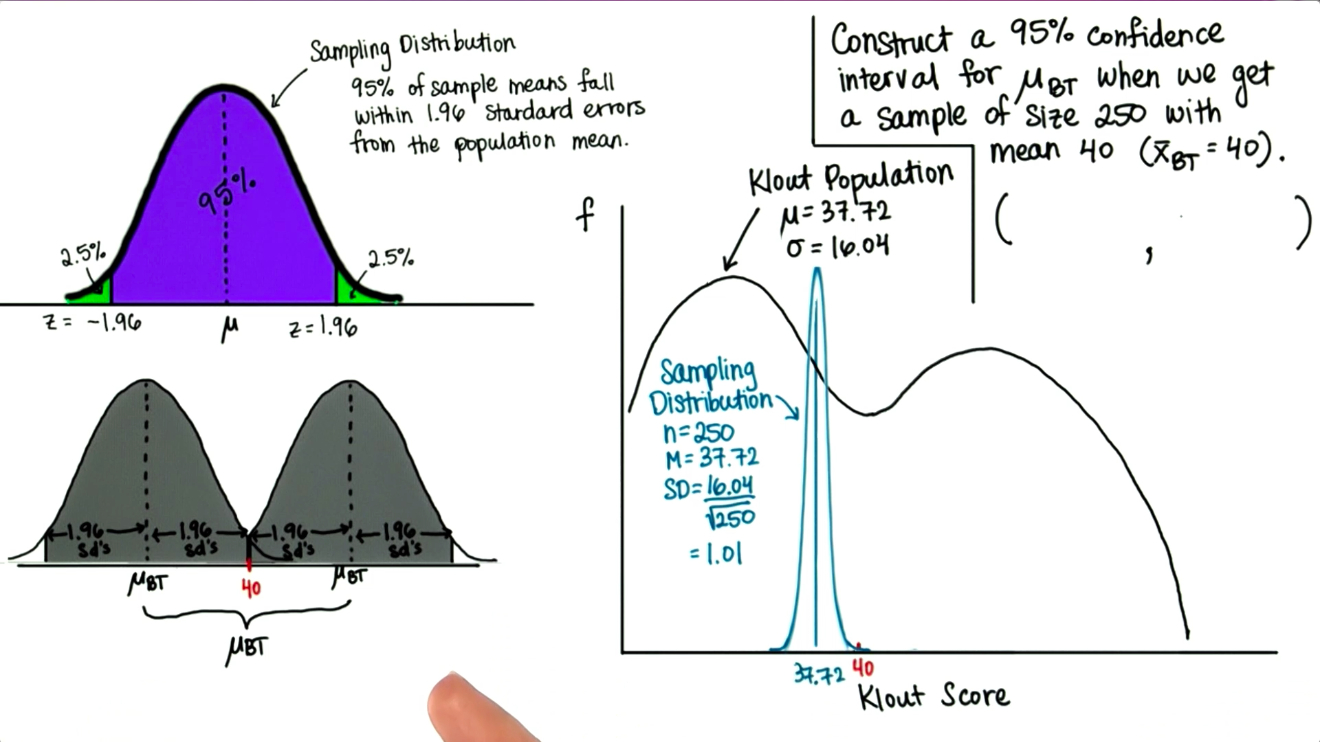 Sampling Distribution
95% of sample means fall
within 1.96 standard errors
from the population mean.
95%
2.5%
2.5%
z = -1.96
μ
z = 1.96
1.96 sd's
1.96 sd's
1.96 sd's
1.96 sd's
μBT
40
μBT
μBT
Construct a 95% confidence
interval for μBT when we get
a sample of size 250 with
mean 40 (x̄BT = 40).
( , )
Klout Population
μ = 37.72
σ = 16.04
f
Sampling
Distribution
n = 250
M = 37.72
SD = 16.04
√250
= 1.01
37.72
40
Klout Score